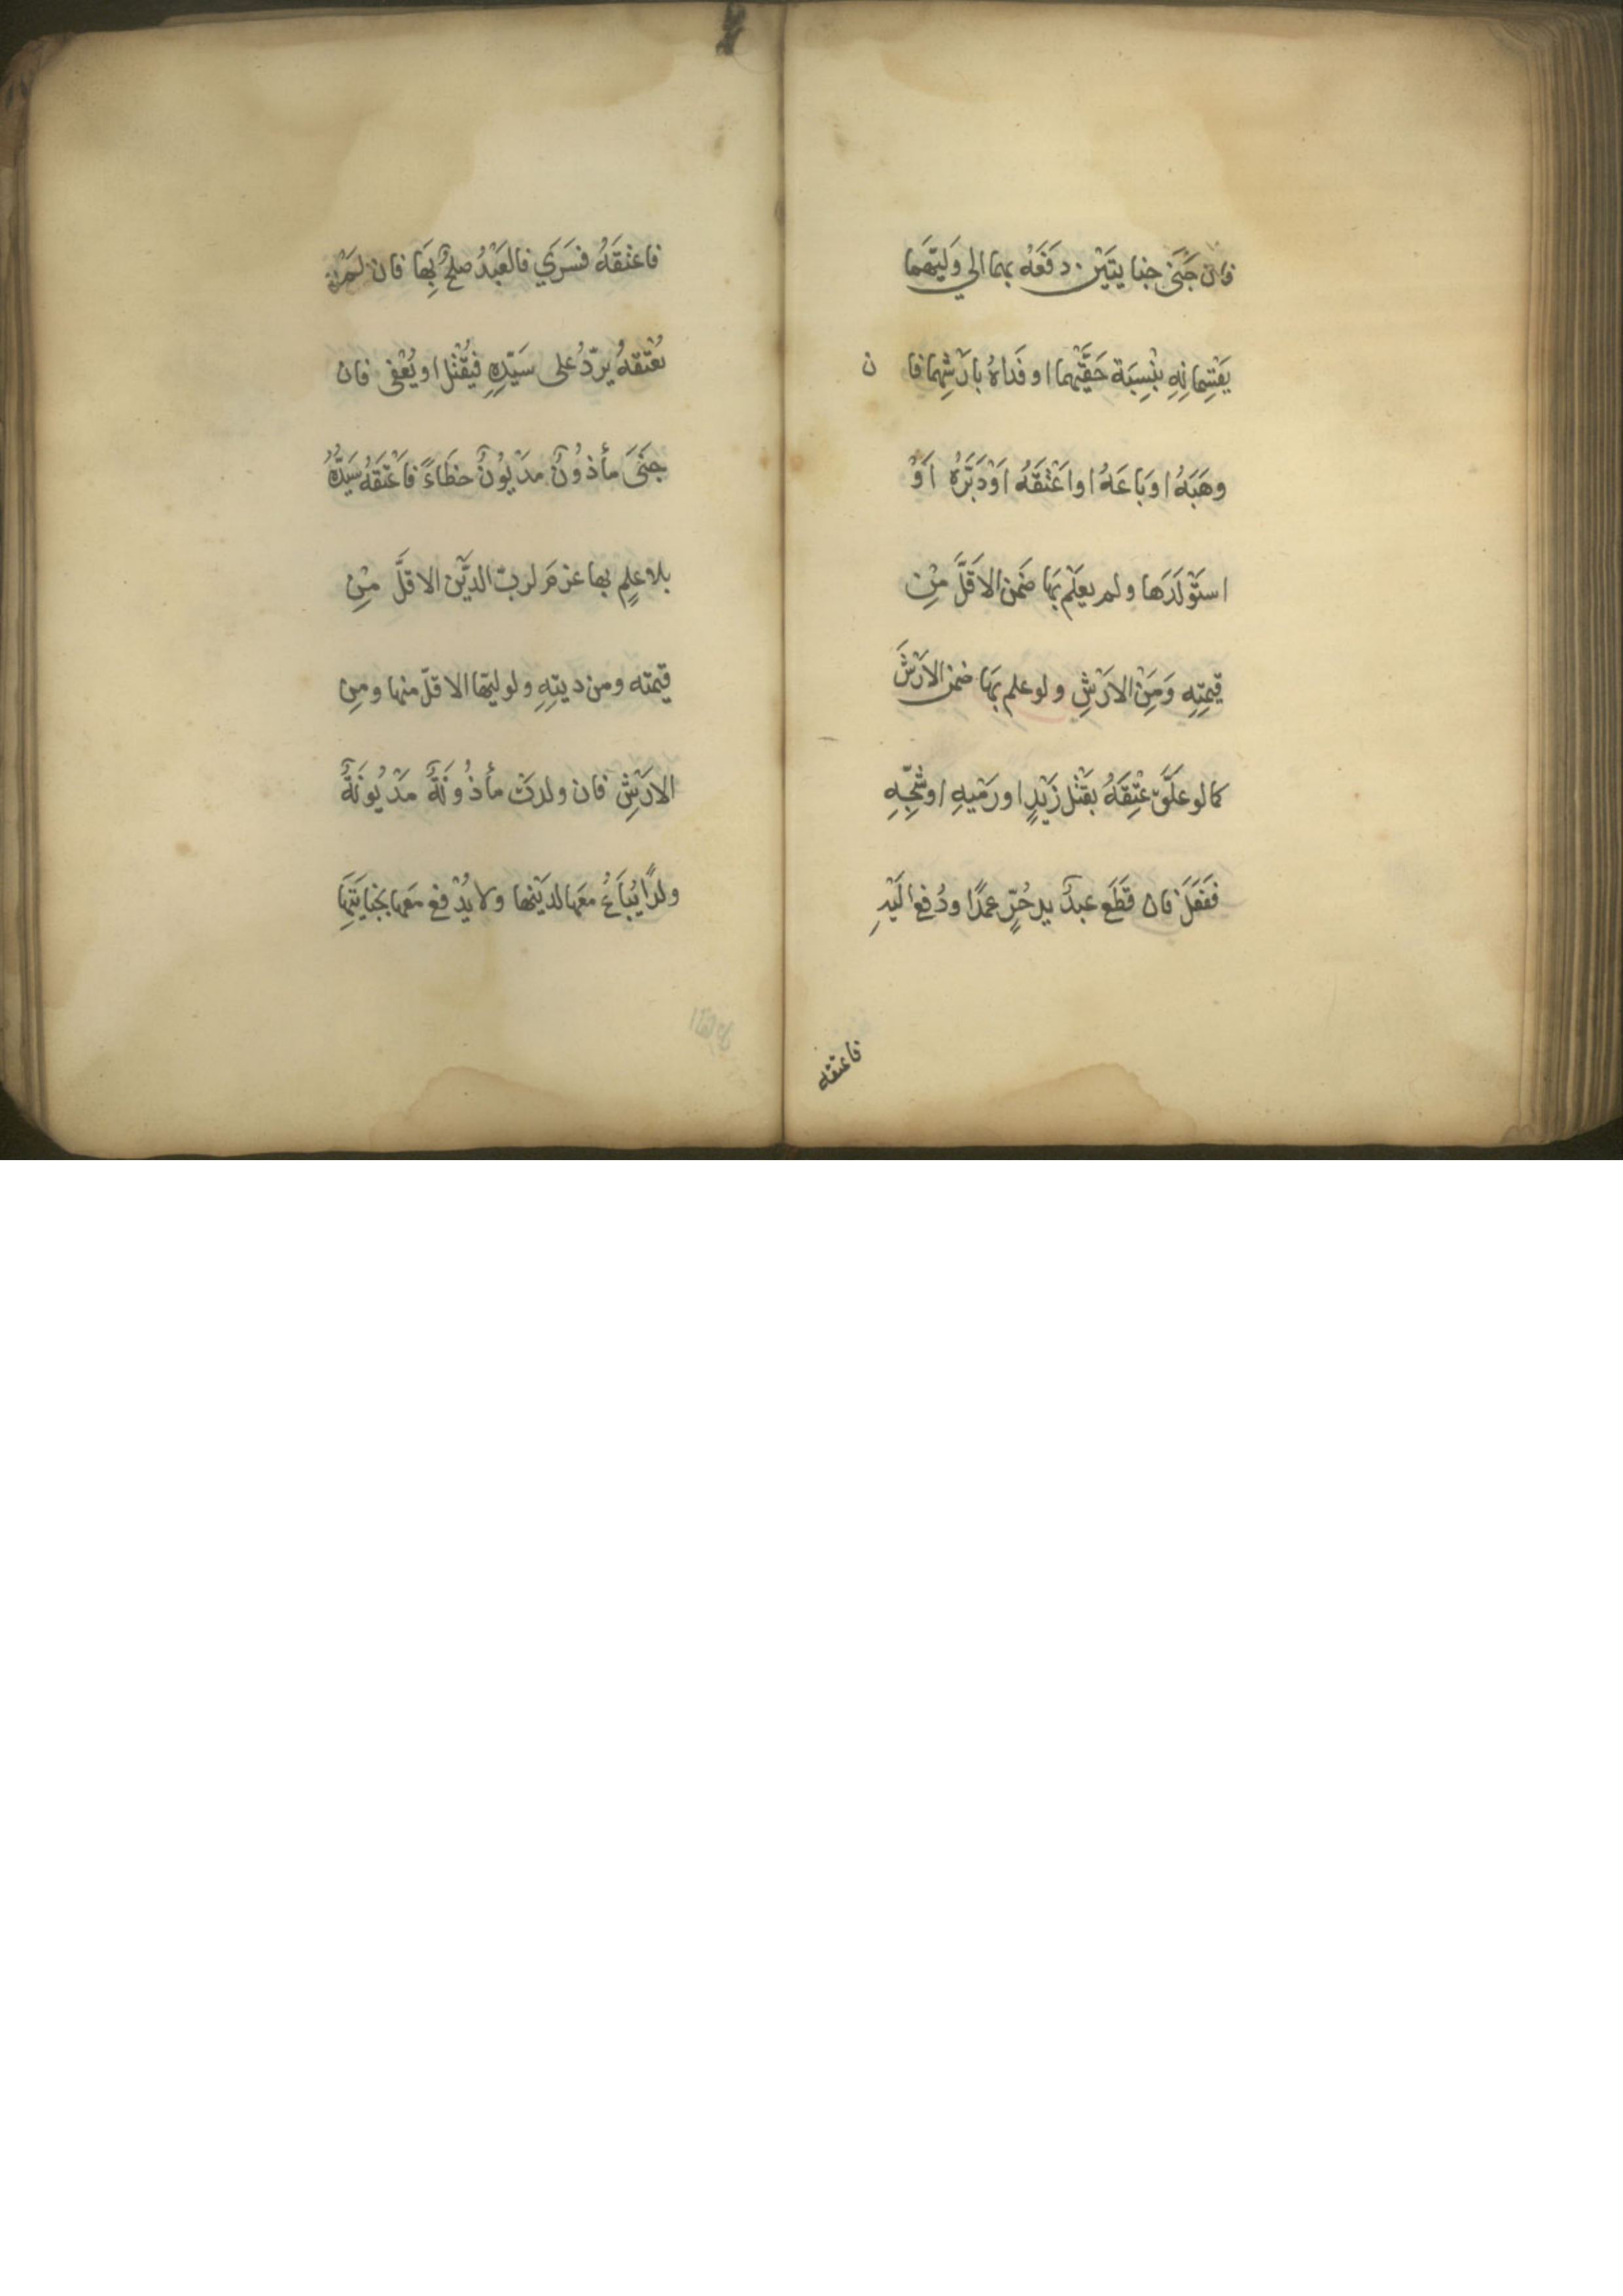 فان جَنَىٰ جنايتَيْن دَفَعَهُ بهما الي وَلِيَّهَما
يَقْتَسِمانِهِ بْنِسِبَة حَقَّيْهِما او فَداهُ بارْشِهِما فان
وهَبَهُ اوبَاعَهُ اواَعْتَقَهُ اَوْدَبَّرَهُ اَوْ
استَوْلَدَها ولم يعلَمْ بَهَا ضَمنَ الاَقَلَّ مِنْ
قيمِتِهِ وَمِنَ الارْشِ ولو علم بِهَا ضمن الارْشَ
كما لو علَّقَ عْتِقَهُ بقَتْل زَيْدٍ او رَمْيهِ اوشَجِّهِ
ففَعَلَ فان قَطَع عبدٌ يد حُرٍّ عمدًا ودُفعَ الَيْهِ
فاعتقه
فاعتَقَهُ فسَرَي فالعَبْدُ صلحٌ بِهَا فان لم
يُعْتقهُ يردُّ على سَيّدِهِ فيُقْتَل او يُعْفى فان
جَنَىَ مأذُونٌ مدْيُونٌ خطَاءً فاَعْتَقَهُ سَيّدُهُ
بلا عِلمٍ بها غرم لربّ الديْن الاقلَّ مِنْ
قيمته ومن ديتِهِ ولوليّها الاقلّ منها ومِن
الارْشِ فان ولدتْ مأذُونَةٌ مَدْيُونَةٌ
ولدًا يُباَعُ معَها لدَيْنِها ولا يُدْفع معَها بجنايَتِهَا